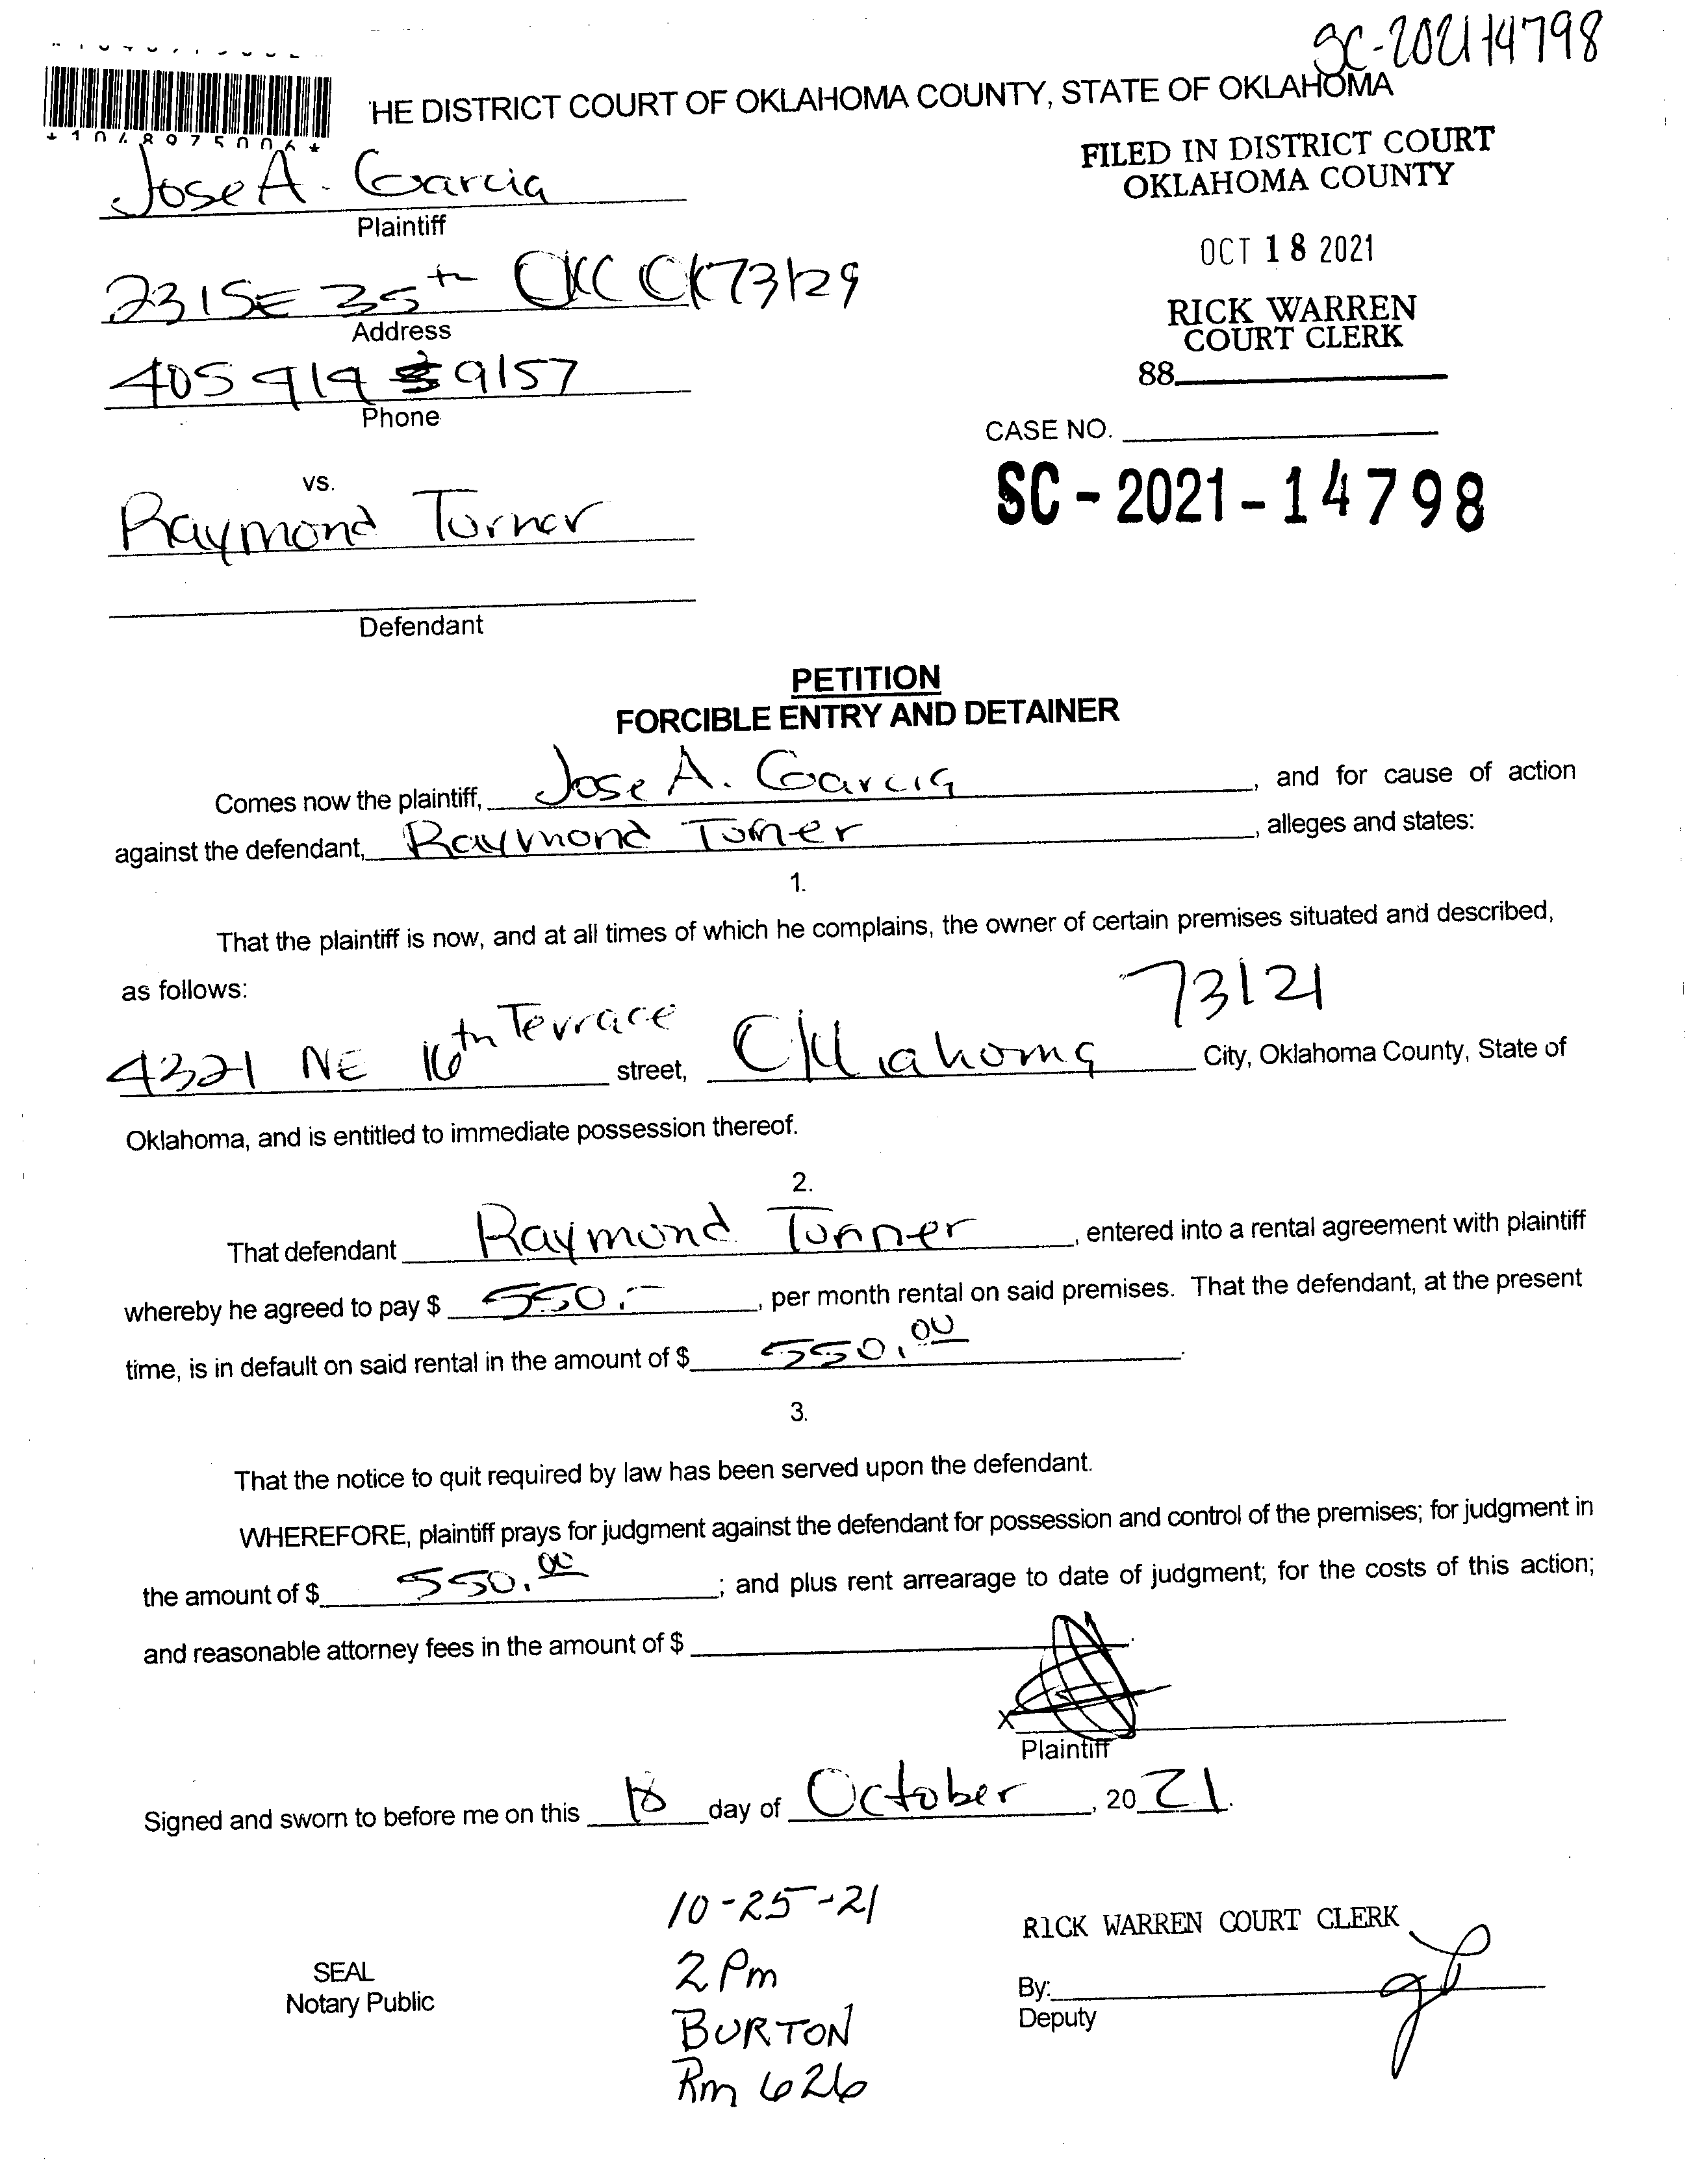 SC-2021-14798
*1048975006*
HE DISTRICT COURT OF OKLAHOMA COUNTY, STATE OF OKLAHOMA
FILED IN DISTRICT COURT
OKLAHOMA COUNTY
Jose A. Garcia
Plaintiff
OCT 18 2021
231 SE 35th OKC OK 73129
Address
RICK WARREN
COURT CLERK
405 919 9157
Phone
88
CASE NO.
vs.
SC-2021-14798
Raymond Turner
Defendant
PETITION
FORCIBLE ENTRY AND DETAINER
Comes now the plaintiff, Jose A. Garcia, and for cause of action
against the defendant, Raymond Turner, alleges and states:
1.
That the plaintiff is now, and at all times of which he complains, the owner of certain premises situated and described,
as follows:
73121
4321 NE 16th Terrace street, Oklahoma City, Oklahoma County, State of
Oklahoma, and is entitled to immediate possession thereof.
2.
That defendant Raymond Turner, entered into a rental agreement with plaintiff
whereby he agreed to pay $ 550.-, per month rental on said premises. That the defendant, at the present
time, is in default on said rental in the amount of $ 550.00.
3.
That the notice to quit required by law has been served upon the defendant.
WHEREFORE, plaintiff prays for judgment against the defendant for possession and control of the premises; for judgment in
the amount of $ 550.00; and plus rent arrearage to date of judgment; for the costs of this action;
and reasonable attorney fees in the amount of $ .
X
Plaintiff
Signed and sworn to before me on this 18 day of October, 2021.
10-25-21
2 Pm
BURTON
Rm 626
SEAL
Notary Public
RICK WARREN COURT CLERK
By:
Deputy